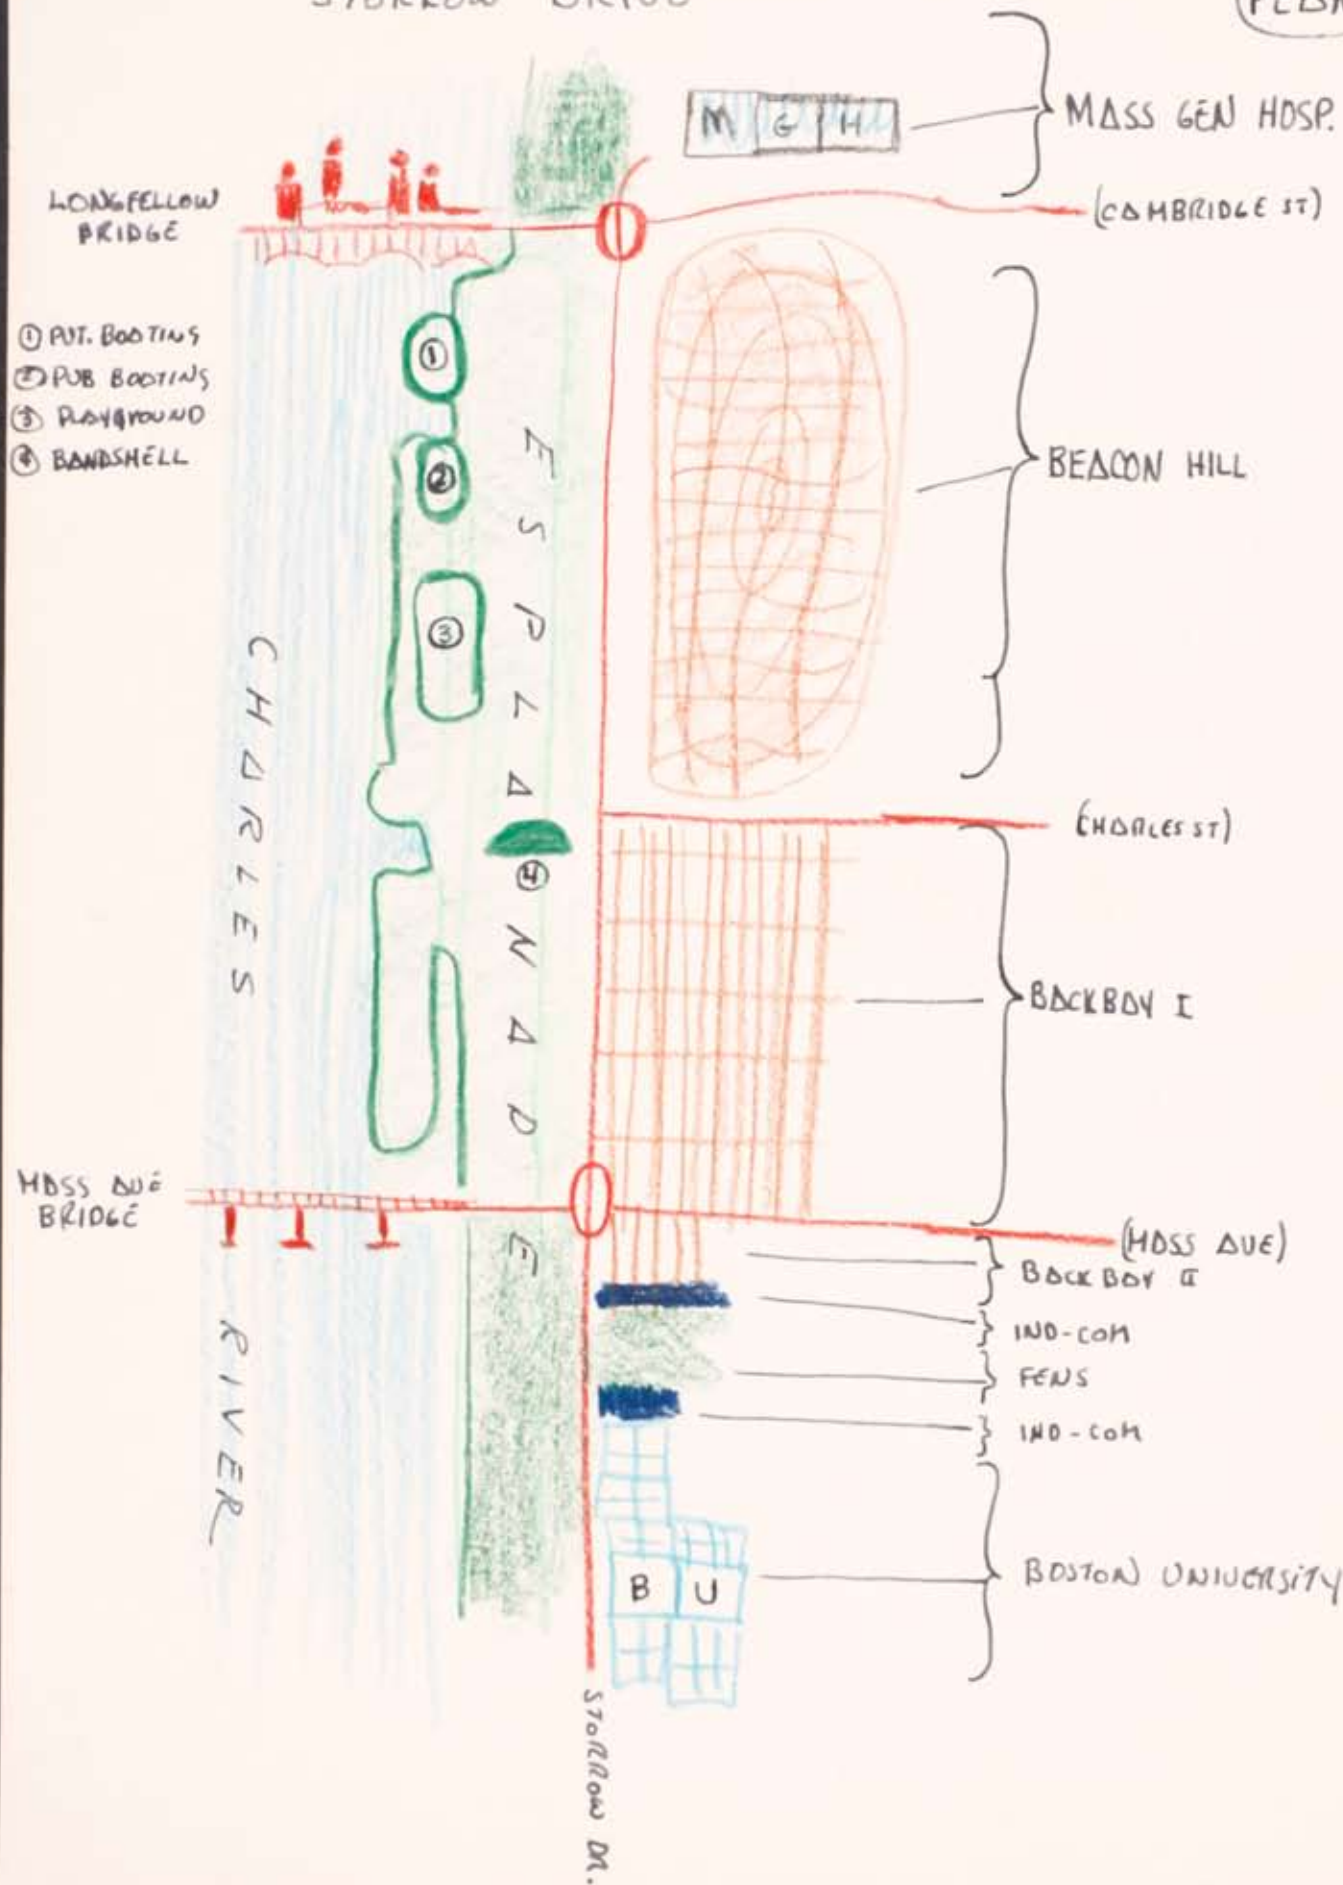 STORROW DRIVE
M G H
MASS GEN HOSP.
LONGFELLOW
BRIDGE
(CAMBRIDGE ST)
① PVT. BOATING
② PUB BOATING
③ PLAYGROUND
④ BANDSHELL
①
②
③
④
ESPLANADE
BEACON HILL
CHARLES RIVER
(CHARLES ST)
BACKBAY I
MASS AVE
BRIDGE
(MASS AVE)
BACK BAY II
IND-COM
FENS
IND-COM
B U
BOSTON UNIVERSITY
STORROW DR.